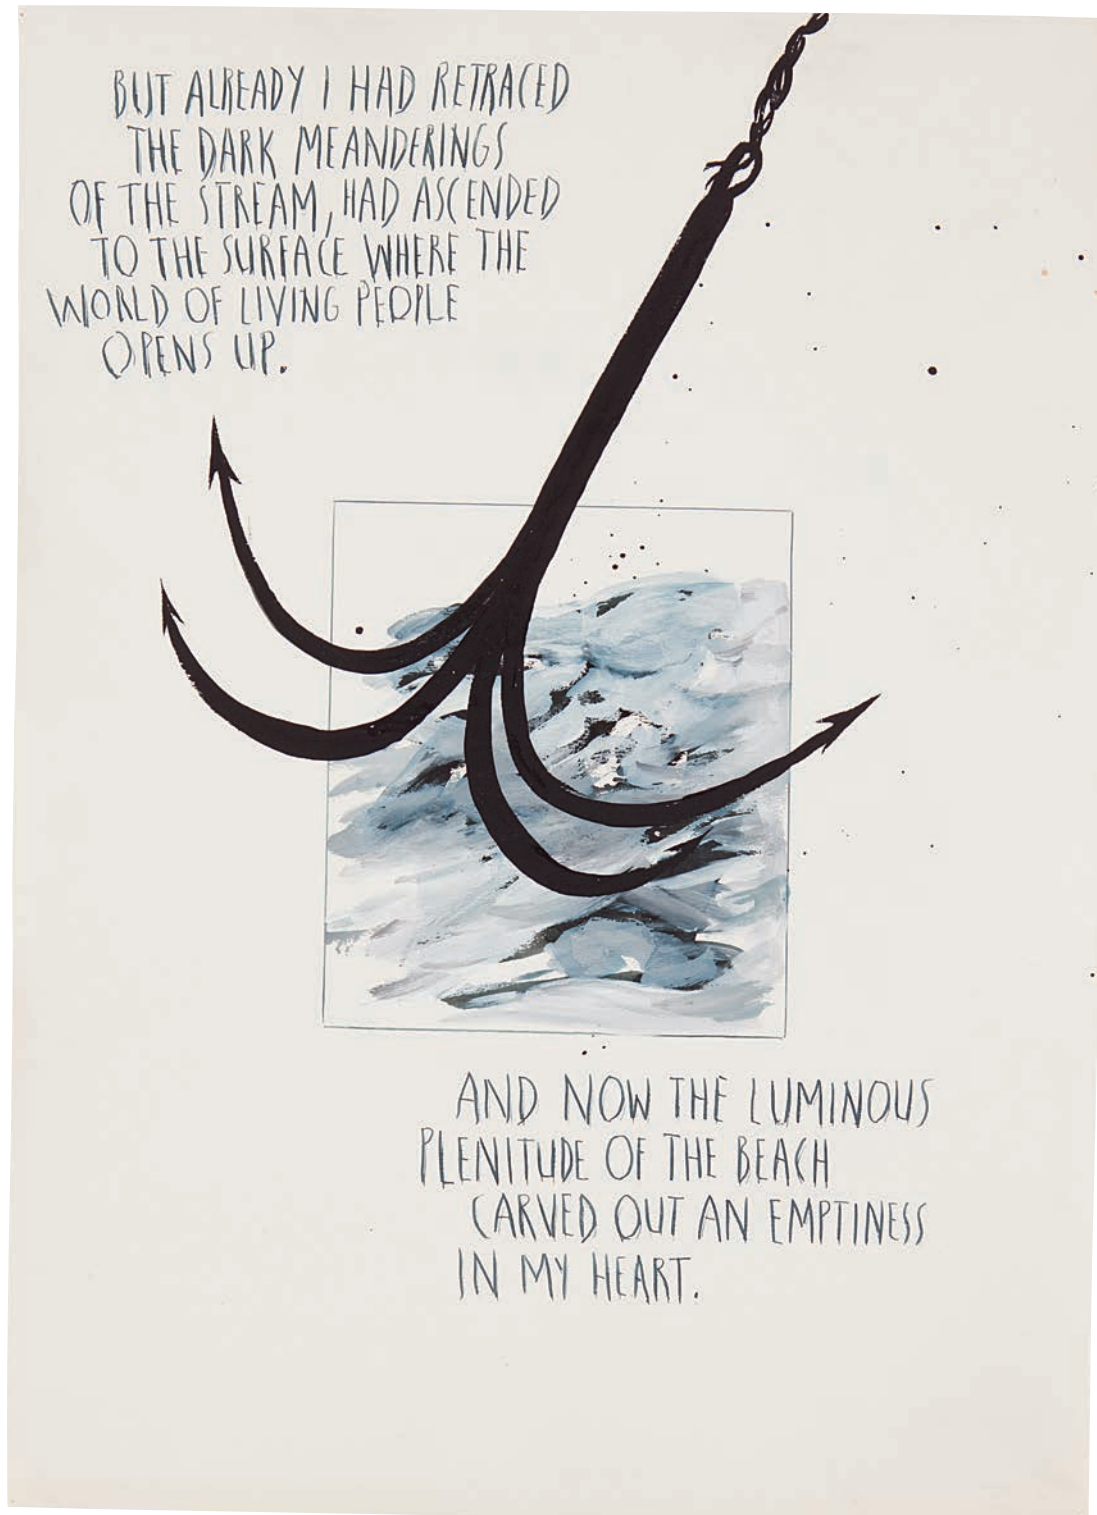 BUT ALREADY I HAD RETRACED
THE DARK MEANDERINGS
OF THE STREAM, HAD ASCENDED
TO THE SURFACE WHERE THE
WORLD OF LIVING PEOPLE
OPENS UP.
AND NOW THE LUMINOUS
PLENITUDE OF THE BEACH
CARVED OUT AN EMPTINESS
IN MY HEART.